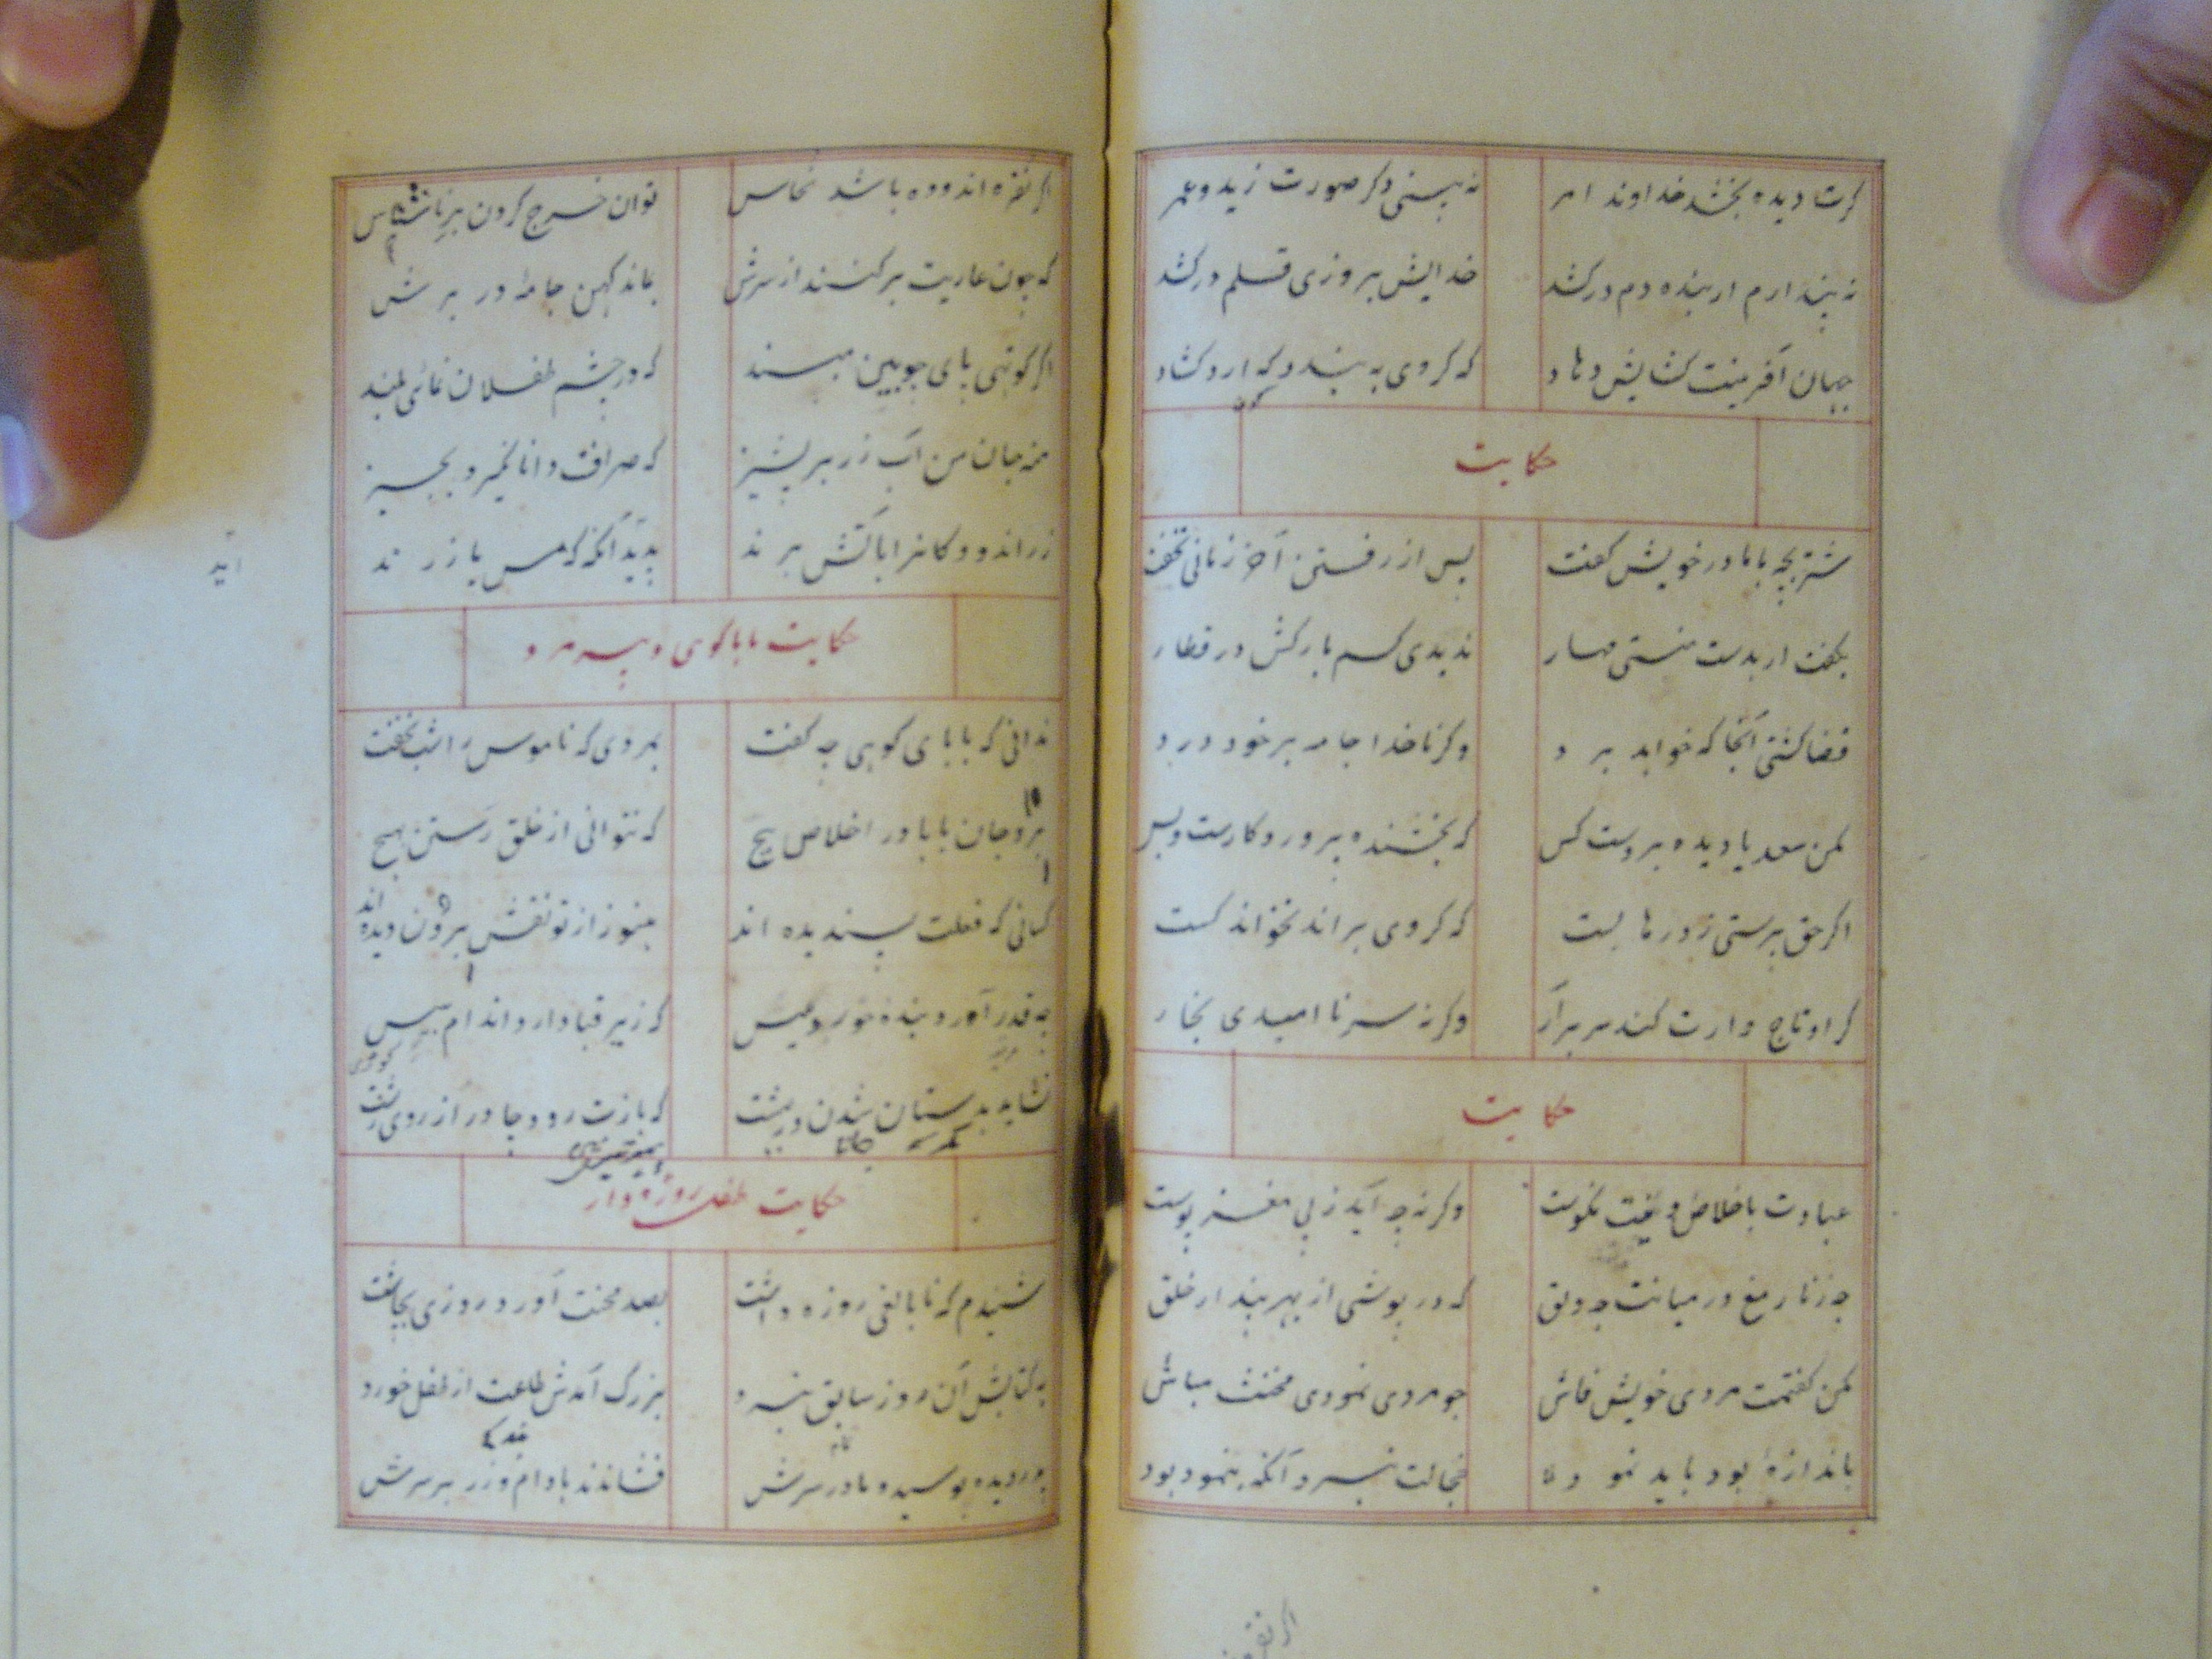 کرت دیده بخشد خداوند امر نه بینی دگر صورت زید و عمر
نه پندارم ار بنده دم درکشد خدایش بروزی قلم درکشد
جهان آفرینت کشایش دهاد که گر وی به بندد که ارد کشاد
حکایت
شتر بچه با مادر خویش گفت پس از رفتن آخر زمانی بخفت
بگفت ار بدست منستی مهار ندیدی کسم بارکش در قطار
قضا کشتی آنجا که خواهد برد وگر ناخدا جامه بر خود درد
مکن سعدیا دیده بر دست کس که بخشنده پروردگارست و بس
اگر حق پرستی ز درها بست که گر وی براند نخواند کست
گر او تاج دارت کند سر برآر وگرنه سر ناامیدی بخار
حکایت
عبادت باخلاص نیت نکوست وگرنه چه آید ز بی مغز پوست
چه زنار مغ در میانت چه دلق که در پوشی از بهر پندار خلق
مکن گفتمت مردی خویش فاش چو مردی نمودی مخنث مباش
باندازهٔ بود باید نمود خجالت نبرد آنکه ننمود بود
اگر نقره
اگر نقره اندوده باشد نحاس توان خرج کردن بر ناشناس
که چون عاریت برکنند از سرش بماند کهن جامه در برش
اگر کوتهی پای چوبین مبند که در چشم طفلان نمائی بلند
منه جان من آب زر بر پشیز که صراف دانا نگیرد بچیز
زراندودکانرا باتش برند پدید آنگه که مس یا زرند
آید
حکایت بابا کوهی و پیر مرد
ندانی که بابای کوهی چه گفت بمردی که ناموس را شب نخفت
برو جان بابا در اخلاص پیچ که نتوانی از خلق رستن بهیچ
کسانی که فعلت پسندیده اند هنوز از تو نقش برون دیده اند
چه قدر آورد بنده خوردیس که زیر قبا دارد اندام پیس
نشاید بدستان شدن در بهشت که بازت رود چادر از روی زشت
حکایت طفل روزه دار
شنیدم که نابالغی روزه داشت بصد محنت آورد روزی بچاشت
به کتابش آن روز سابق نبرد بزرگ آمدش طاعت از طفل خورد
پدر دیده بوسید و مادر سرش فشاندند بادام و زر بر سرش